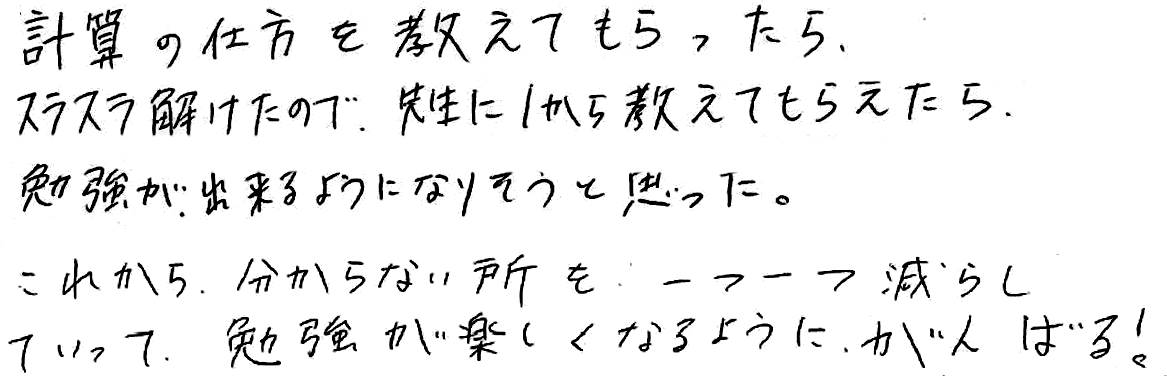 計算の仕方を教えてもらったら、
スラスラ解けたので、先生に1から教えてもらえたら、
勉強が出来るようになりそうと思った。
これから、分からない所を一つ一つ減らし
ていって、勉強が楽しくなるように、がんばる!